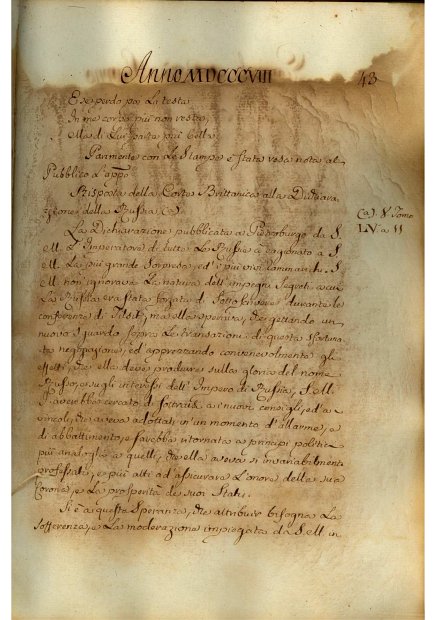 Anno MDCCCVIII
43
E se perdo poi la testa
In me corpo più non resta,
Ella di lui parla più bella.
Parimente con le Stampe è stata resa nota al
Pubblico l'app.
Risposta della Corte Brittanica alla Dichiara-
zione della Russia (a)
(a) V. Tomo
LV. a 11
La Dichiarazione pubblicata a Pietroburgo da S.
M. l'Imperatore di tutte le Russie ha cagionato a S.
M. la più grande sorpresa, ed i più vivi rammarichi. S.
M. non ignorava la natura dell'impegni segreti, a cui
la Russia era stata forzata di sottoscrivere durante le
conferenze di Tilsit, ma ella sperava, che gettando un
nuovo sguardo sopra le transazioni di questa sfortunata
negoziazione, ed apprezzando convenevolmente gli
effetti, che ella deve produrre sulla gloria del nome
Russo, e sugli interessi dell'Impero di Russia, S. M. I.
avrebbe cercato di sottrarsi a nuovi consigli, ed a
vincoli, che aveva adottati in un momento d'allarme, e
di abbattimento, e sarebbe ritornata a principj politici
più analoghi a quelli, che ella aveva sì invariabilmente
professati, e più atti ad assicurare l'onore della sua
Corona, e la prosperità de suoi Stati.
Si è a questa speranza, che attribuir bisogna la
sofferenza, e la moderazione impiegata da S. M. in